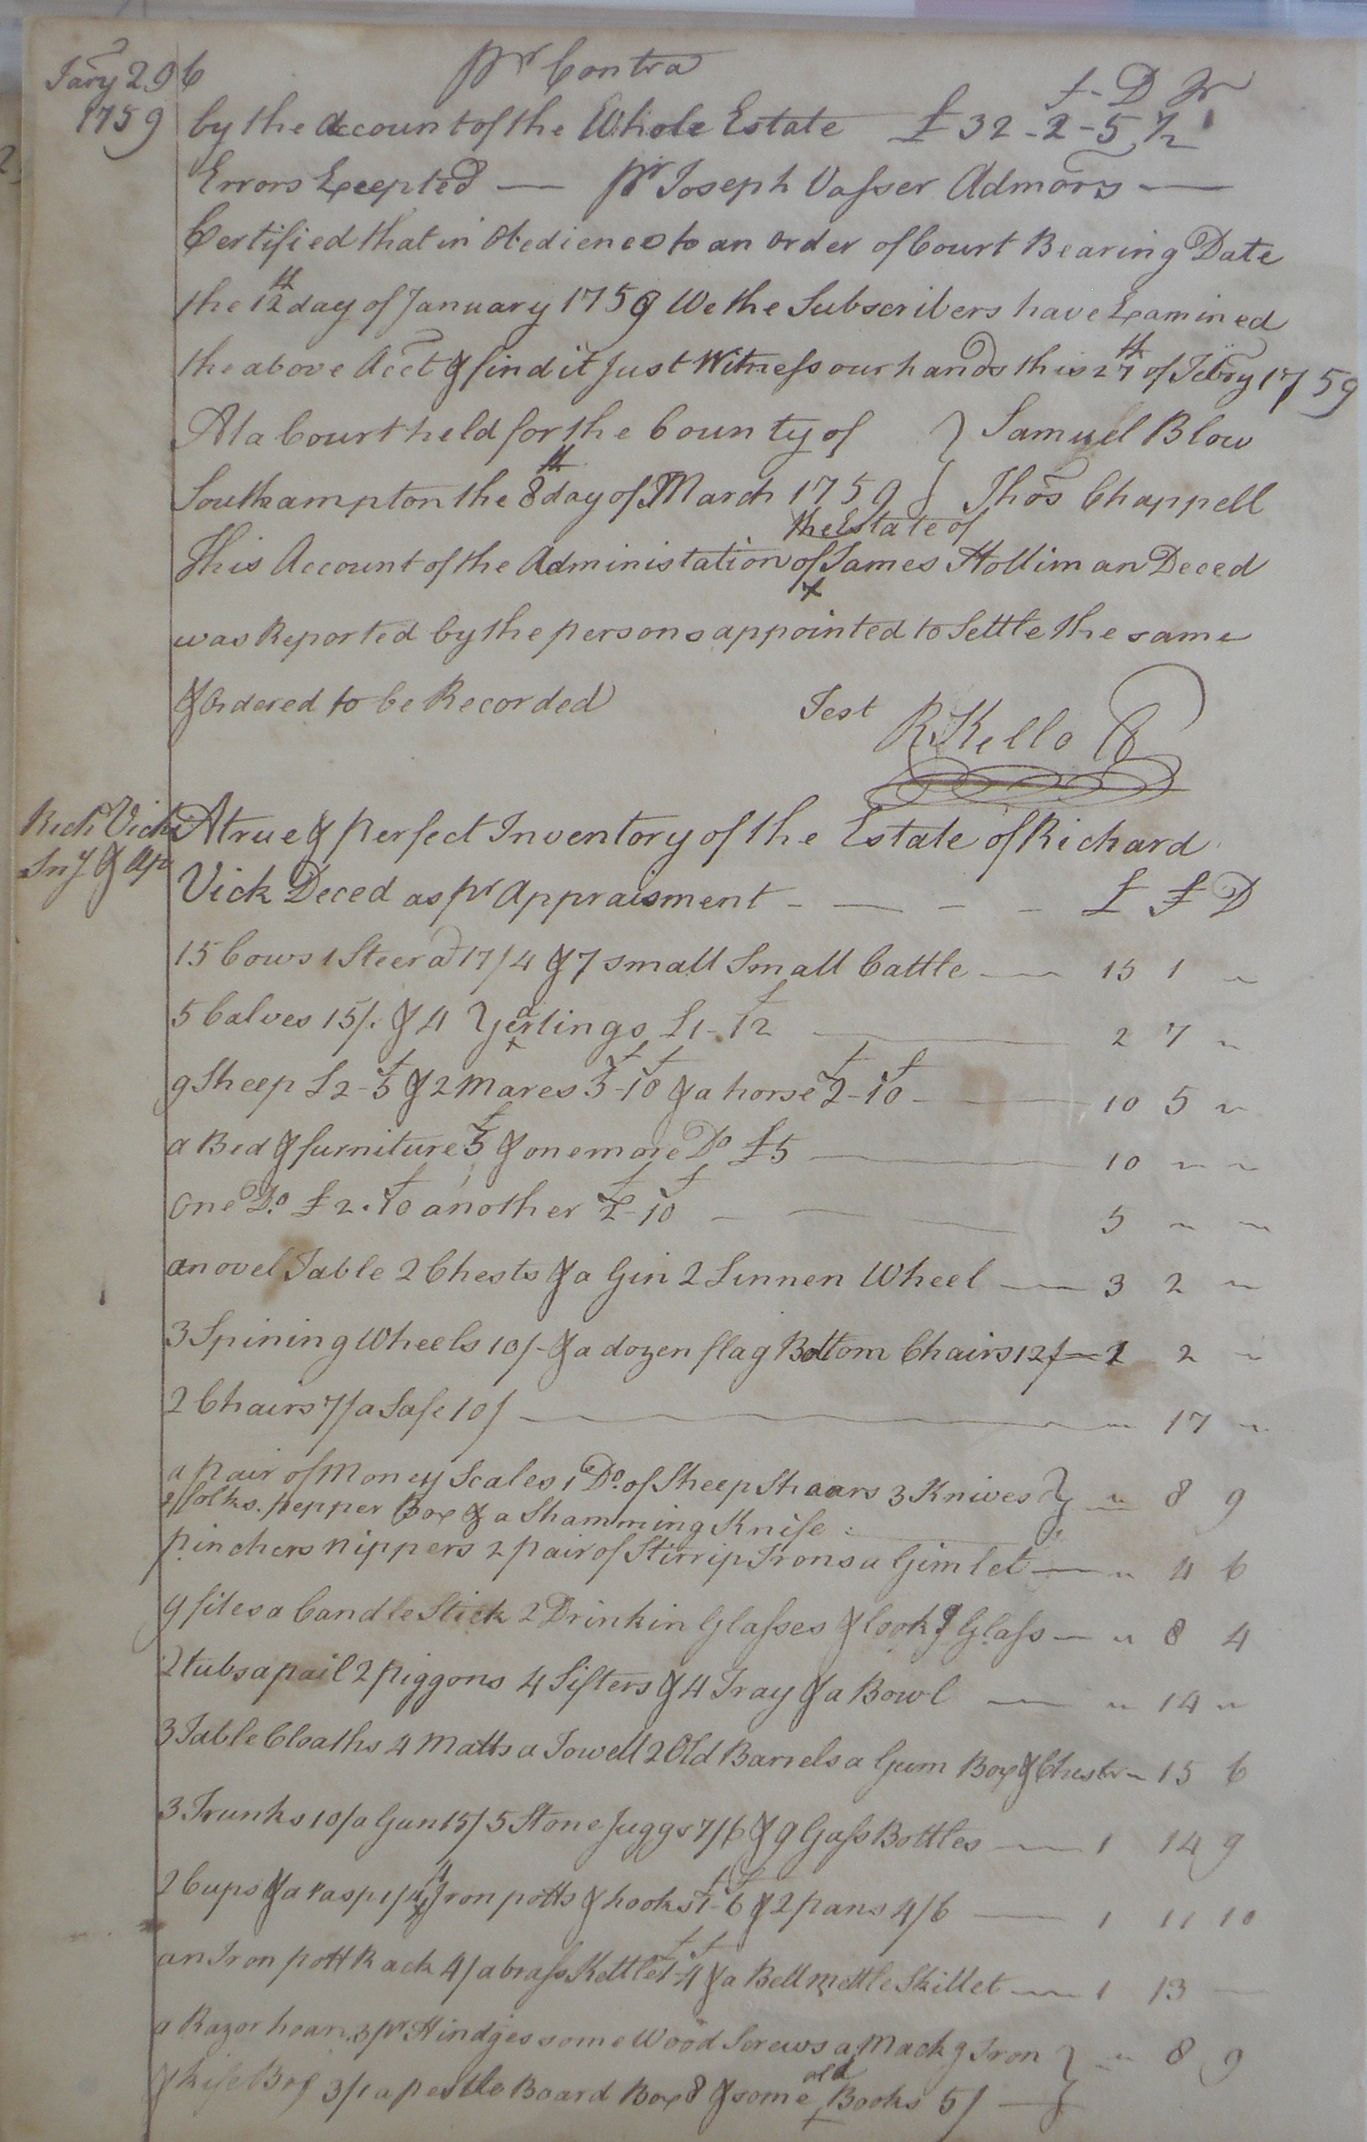 pr Contra
Jary 29 6 £ - D Fr
1759 by the Account of the Whole Estate £ 32 - 2 - 5 1/2
Errors Excepted — pr Joseph Vasser Admors —
Certified that in Obedience to an order of Court Bearing Date
the 12th day of January 1759 We the Subscribers have Examined
the above Acct & find it Just Witness our hands this 27th of Febry 1759
At a Court held for the County of } Samuel Blow
Southampton the 8th day of March 1759 } Thos Chappell
the Estate of
This Account of the Administation of James Holliman Deced
was Reported by the persons appointed to Settle the same
& Ordered to be Recorded Test R. Kello C
Richd Vicks A true & perfect Inventory of the Estate of Richard
Invy & Ap Vick Deced as pr Appraisment - — - - £ s D
15 Cows 1 Steer a 17/4 & 7 small Small Cattle — 15 1 "
5 Calves 15/. & 4 Yearlings £1-12 — 2 7 "
9 Sheep £2-5 & 2 Mares 5-10 & a horse 2-10 — 10 5 "
a Bed & furniture 5 & one more Do £5 — 10 " "
One Do £2.10 another 2-10 — 5 " "
an ovel Table 2 Chests & a Gin 2 Linnen Wheel — 3 2 "
3 Spining Wheels 10/- & a dozen flag Bottom Chairs 12/ — 1 2 "
2 Chairs 7/ a Safe 10/ — " 17 "
a pair of Money Scales 1 Do. of Sheep Shaars 3 Knives } " 8 9
folks. pepper Box & a Shamming Knife
pinchers nippers 2 pair of Stirrip Irons a Gimlet — " 4 6
9 files a Candle Stick 2 Drinkin Glasses & look g Glass — " 8 4
2 tubs a pail 2 piggons 4 Sifters & 4 Tray & a Bowl — " 14 "
3 Table Cloaths 4 Matts a Towell 2 Old Barrels a Gum Box & Chest — " 15 6
3 Trunks 10/ a Gun 15/ 5 Stone Juggs 7/6 & 9 Gass Bottles — 1 14 9
2 Cups & a rasp 1/4 4 Iron potts & hooks 1-6 & 2 pans 4/6 — 1 11 10
an Iron pott Rack 4/ a brass Kettle 1-4 & a Bell mettle Skillet — 1 13 —
a Razor hoan 3 pr Hindges some Wood Screws a Mack g Iron } " 8 9
old
& Box 3/1 a pestle Board Box 8 & some Books 5/ —